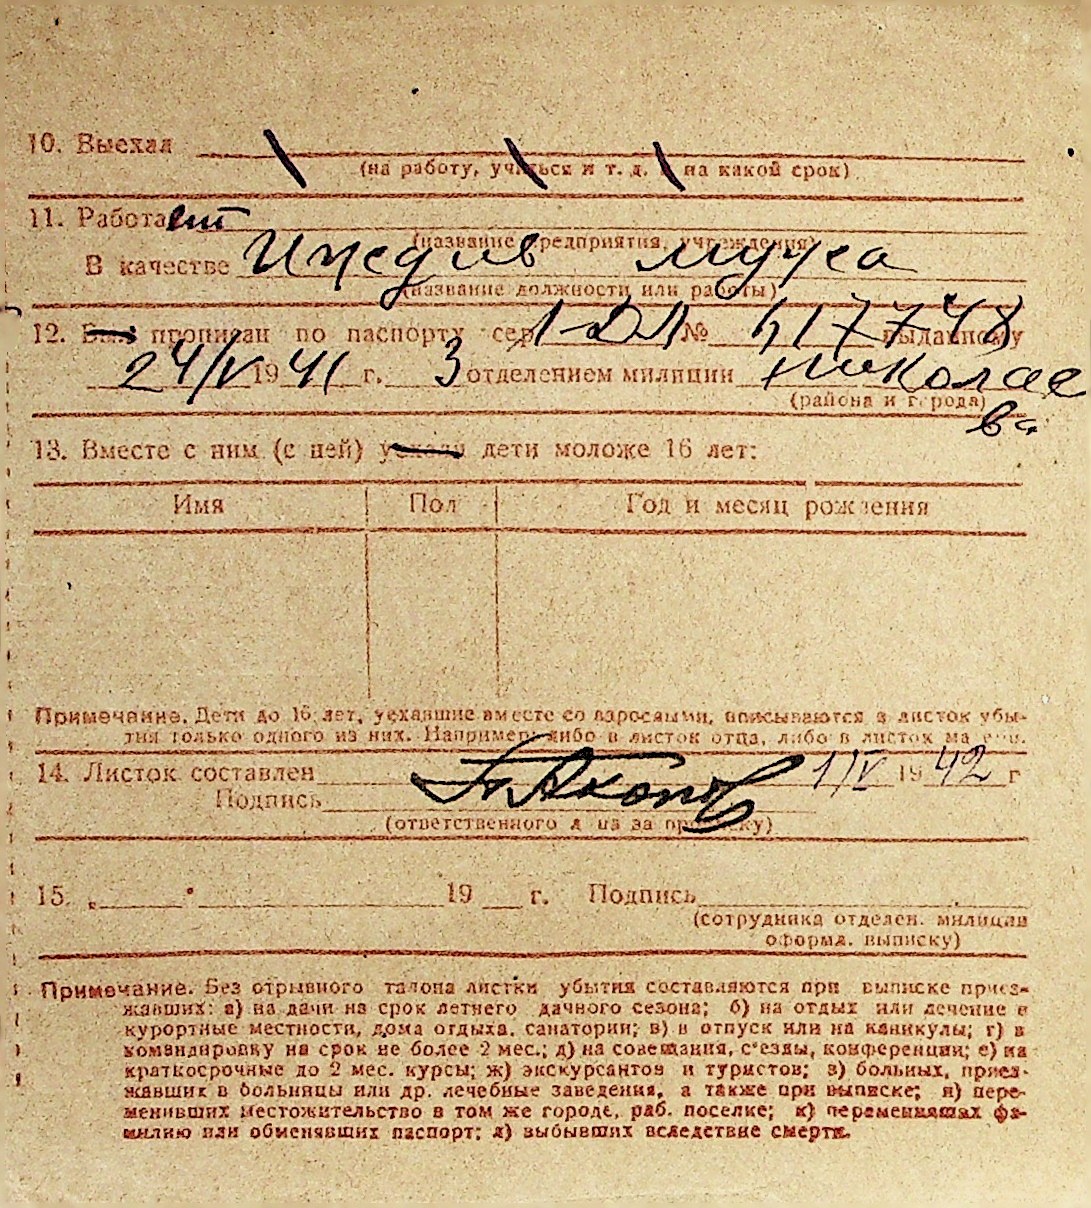 10. Выехал
(на работу, учиться и т. д. и на какой срок)
11. Работает
(название предприятия, учреждения)
В качестве Иждив мужа
(название должности или работы)
12. Был прописан по паспорту сер 1-ДЛ № 517748 выданному
24/V 1941 г. 3 отделением милиции Николае
(района и города)
ва
13. Вместе с ним (с ней) уехали дети моложе 16 лет:
Имя Пол Год и месяц рождения
Примечание. Дети до 16 лет, уехавшие вместе со взрослыми, вписываются в листок убы-
тия только одного из них. Например: либо в листок отца, либо в листок матери.
14. Листок составлен 1/V 1942 г
Подпись
(ответственного лица за прописку)
15. „ " 19 г. Подпись
(сотрудника отделен. милиции
оформл. выписку)
Примечание. Без отрывного талона листки убытия составляются при выписке приез-
жавших: а) на дачи на срок летнего дачного сезона; б) на отдых или лечение в
курортные местности, дома отдыха, санатории; в) в отпуск или на каникулы; г) в
командировку на срок не более 2 мес.; д) на совещания, с'езды, конференции; е) на
краткосрочные до 2 мес. курсы; ж) экскурсантов и туристов; з) больных, приез-
жавших в больницы или др. лечебные заведения, а также при выписке; и) пере-
менивших местожительство в том же городе, раб. поселке; к) переменивших фа-
милию или обменявших паспорт; л) выбывших вследствие смерти.